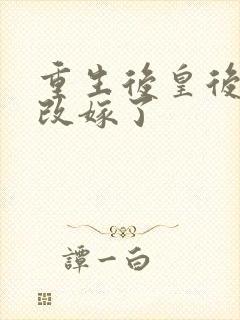 重生後皇後
改嫁了
譚一白